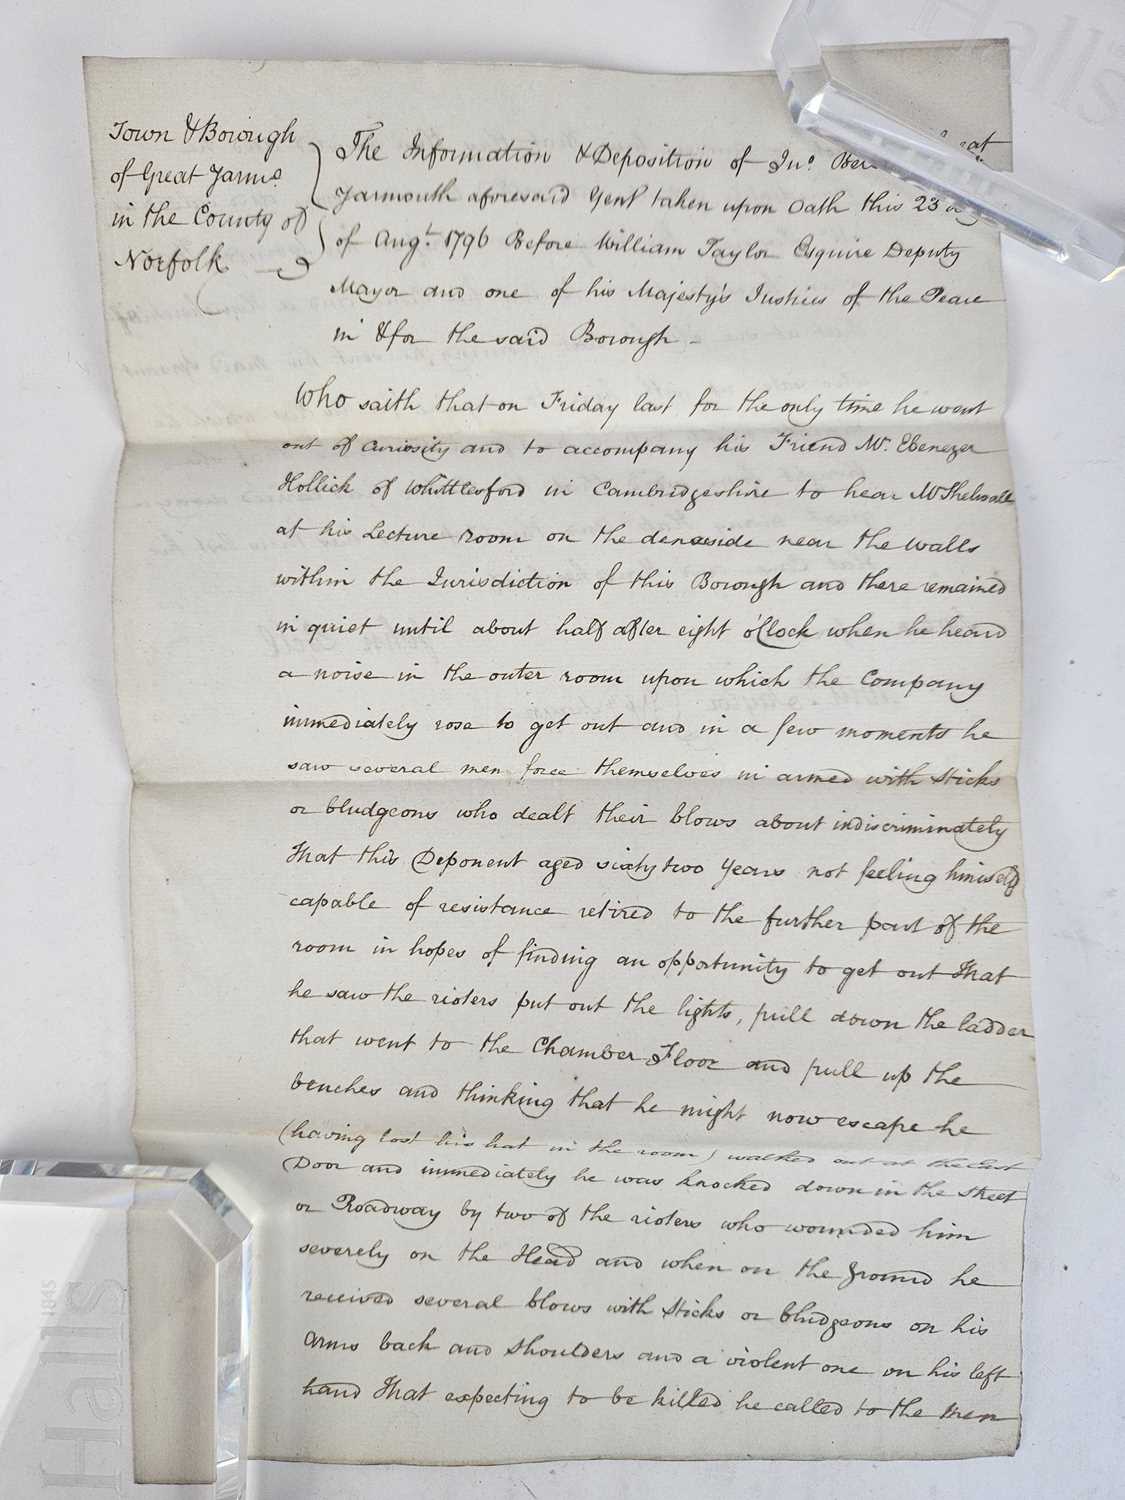 Town & Borough
of Great Yarmo.
in the County of
Norfolk
The Information & Deposition of Jno. Great
Yarmouth aforesaid Gent taken upon Oath this 23
of Augt. 1796 Before William Taylor Esquire Deputy
Mayor and one of his Majesty's Justices of the Peace
in & for the said Borough
Who saith that on Friday last for the only time he went
out of curiosity and to accompany his Friend Mr. Ebenezer
Hollick of Whittlesford in Cambridgeshire to hear Mr Thelwall
at his Lecture room on the deneside near the walls
within the Jurisdiction of this Borough and there remained
in quiet until about half after eight o'Clock when he heard
a noise in the outer room upon which the Company
immediately rose to get out and in a few moments he
saw several men force themselves in armed with sticks
or bludgeons who dealt their blows about indiscriminately
That this Deponent aged sixty two Years not feeling himself
capable of resistance retired to the further part of the
room in hopes of finding an opportunity to get out That
he saw the rioters put out the lights, pull down the ladder
that went to the Chamber Floor and pull up the
benches and thinking that he might now escape he
(having lost his hat in the room) walked out at the East
Door and immediately he was knocked down in the street
or Roadway by two of the rioters who wounded him
severely on the Head and when on the ground he
received several blows with sticks or bludgeons on his
Arms back and shoulders and a violent one on his left
hand That expecting to be killed he called to the men
Halls
1845
Halls